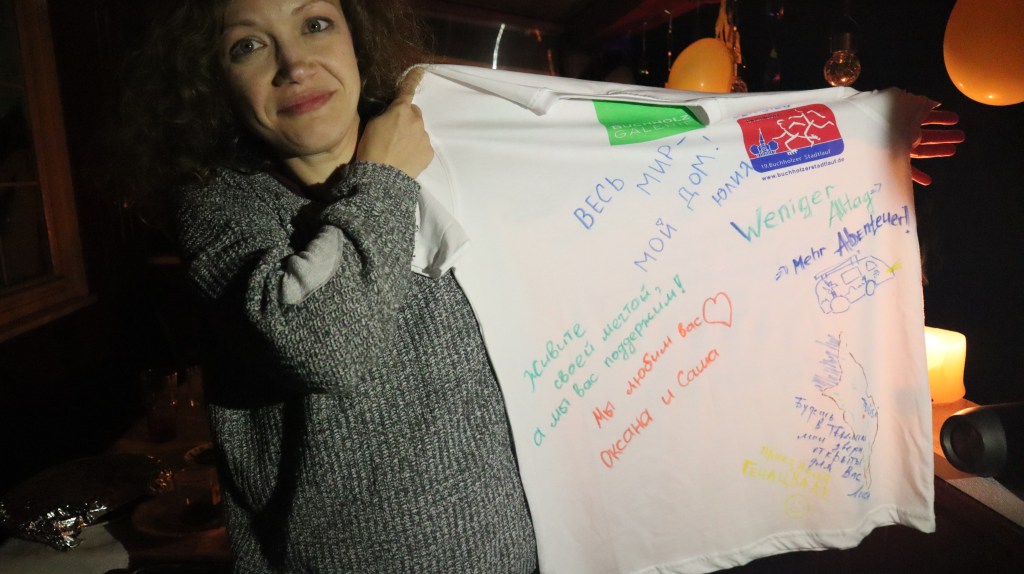 BUCHHOLZ
GALERIE
19.Buchholzer Stadtlauf
www.buchholzerstadtlauf.de
ВЕСЬ МИР-
МОЙ ДОМ!
ЮЛИЯ
Weniger
Alltag
=> Mehr Abenteuer!
Живите
своей мечтой,
а мы вас поддержим!
Мы любим вас
Оксана и Саша
Будешь
в
мои двери
открыты
для Вас